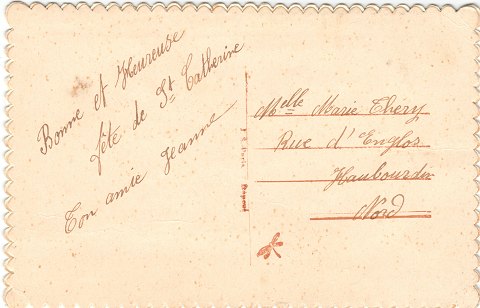 Bonne et Heureuse
fête de St Catherine
Ton amie Jeanne
Melle Marie Thery
Rue d'Englos
Haubourdin
Nord